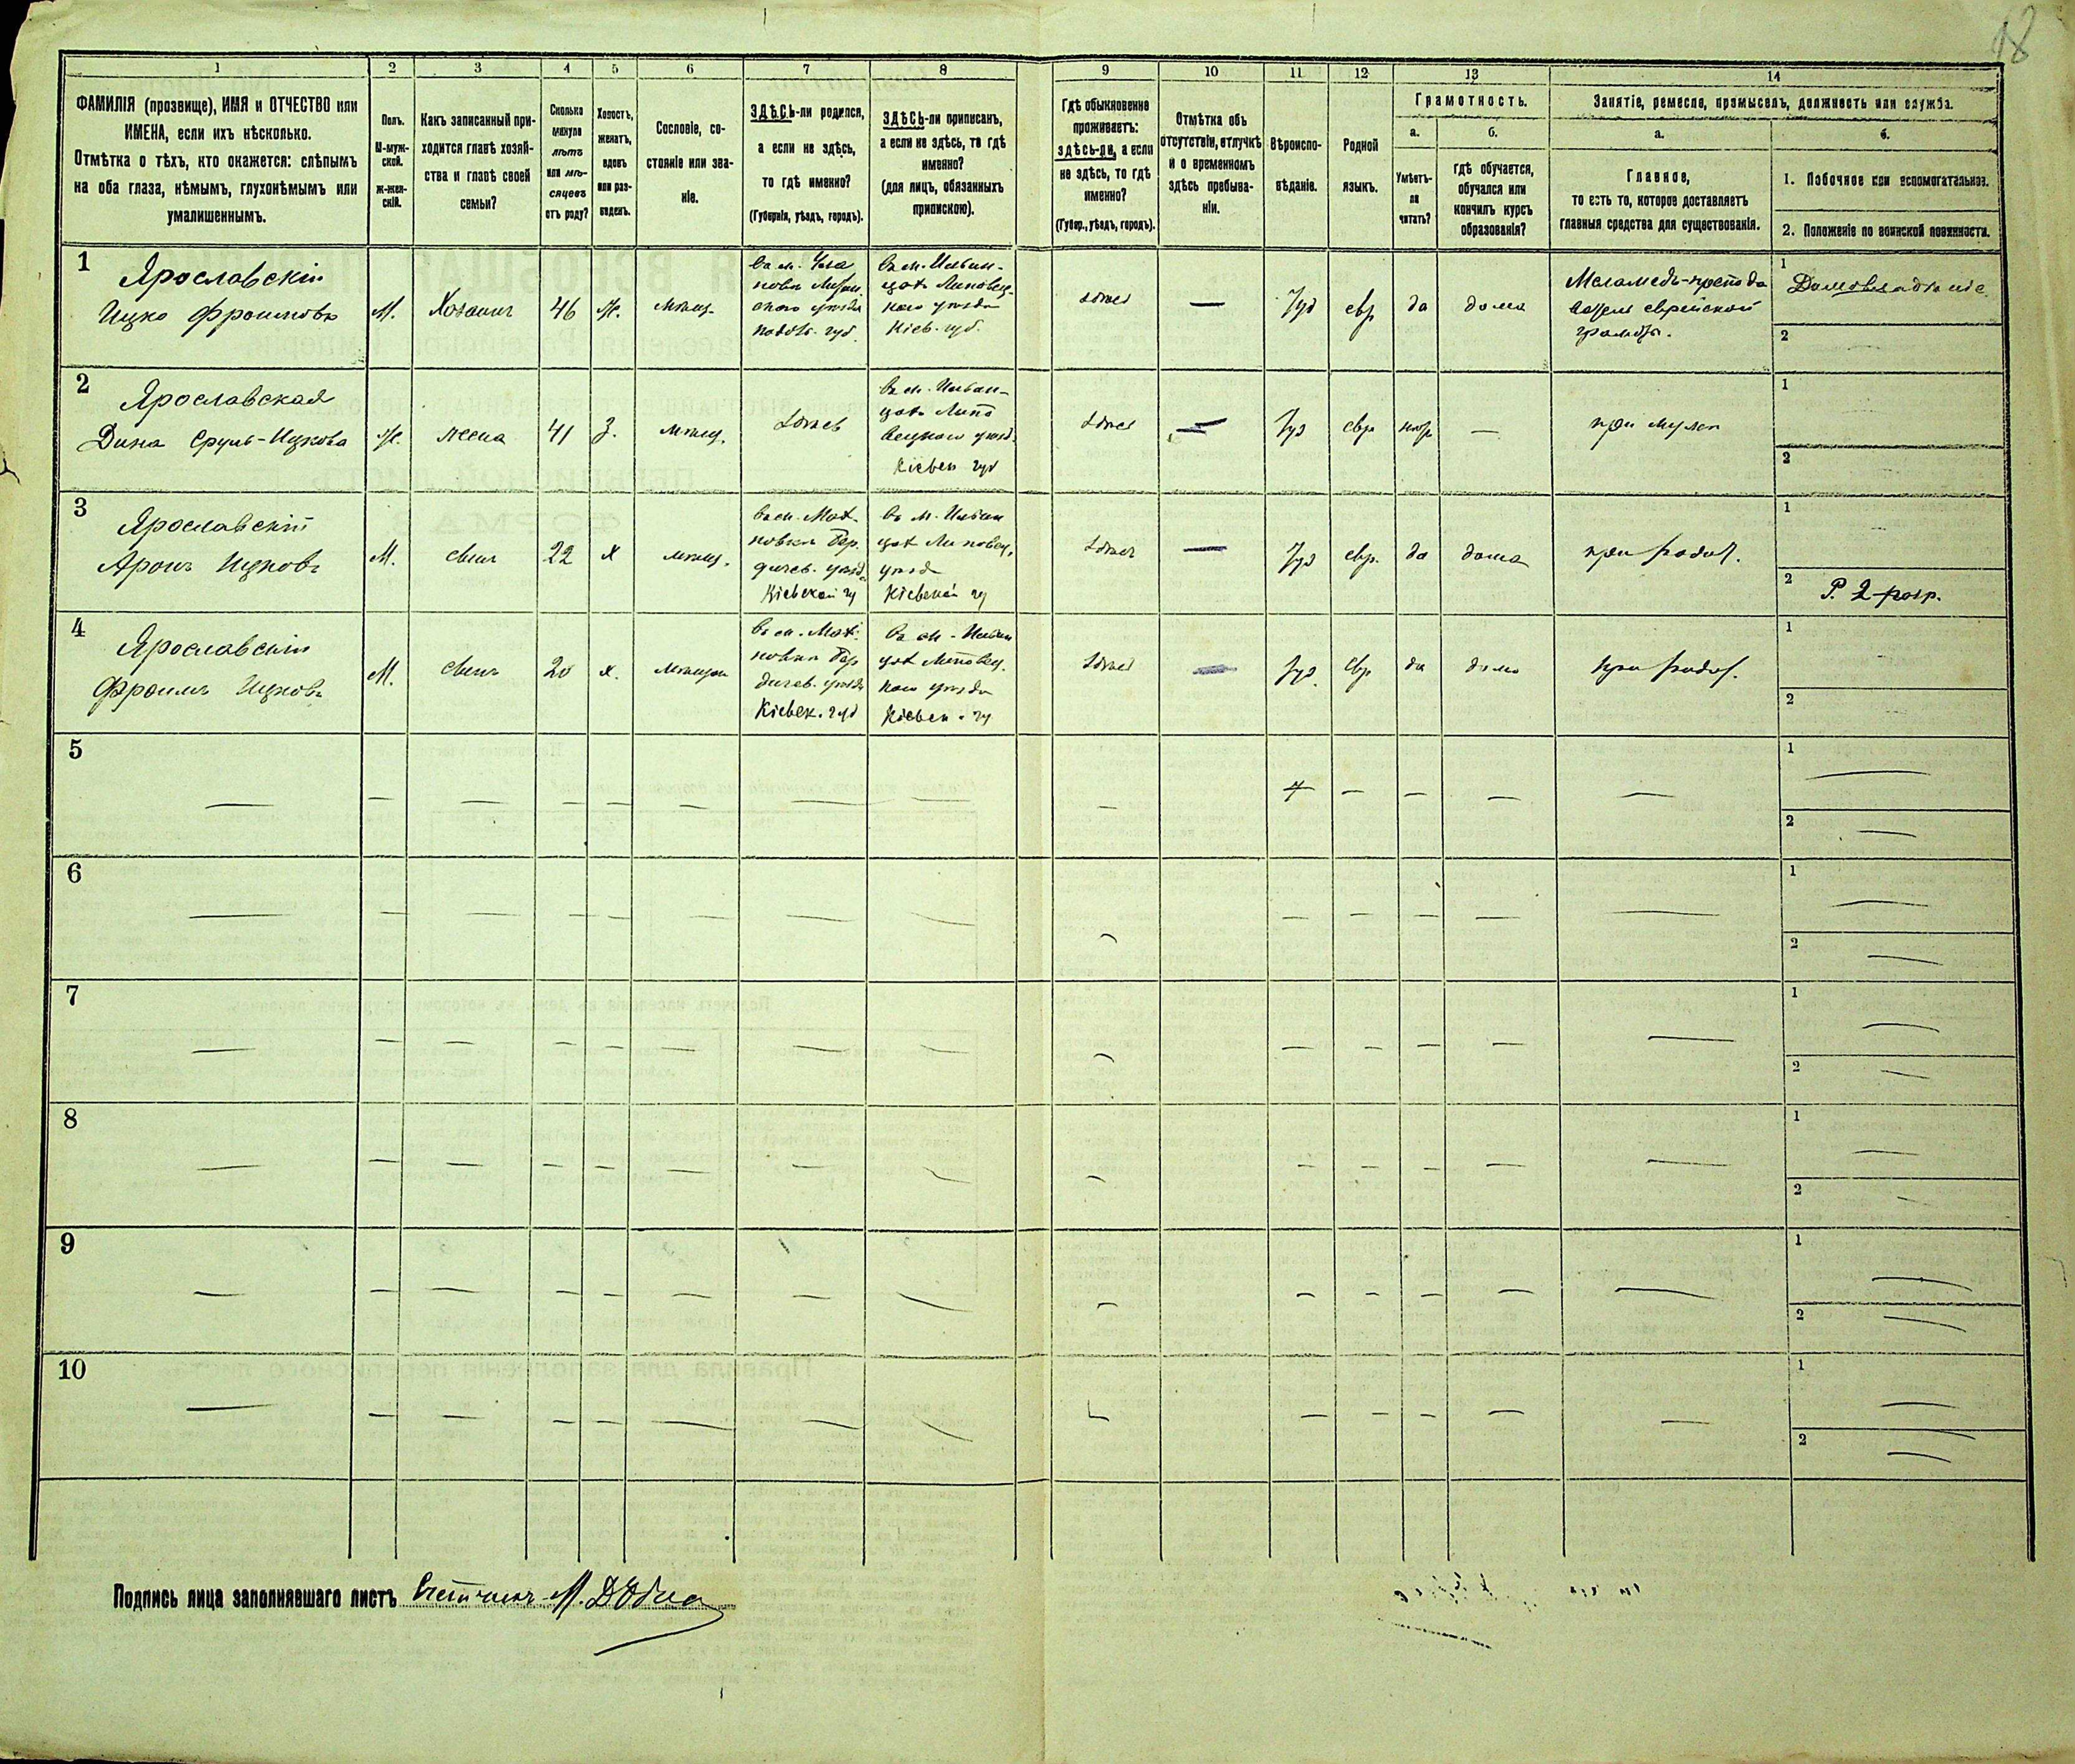 18
1 2 3 4 5 6 7 8 9 10 11 12 13 14
ФАМИЛІЯ (прозвище), ИМЯ и ОТЧЕСТВО или
ИМЕНА, если ихъ нѣсколько.
Отмѣтка о тѣхъ, кто окажется: слѣпымъ
на оба глаза, нѣмымъ, глухонѣмымъ или
умалишеннымъ.
Полъ.
М-муж-
ской.
ж-жен-
скій.
Какъ записанный при-
ходится главѣ хозяй-
ства и главѣ своей
семьи?
Сколько
минуло
лѣтъ
или мѣ-
сяцевъ
отъ роду?
Холостъ,
женатъ,
вдовъ
или раз-
веденъ.
Сословіе, со-
стояніе или зва-
ніе.
ЗДѢСЬ-ли родился,
а если не здѣсь,
то гдѣ именно?
(Губернія, уѣздъ, городъ).
ЗДѢСЬ-ли приписанъ,
а если не здѣсь, то гдѣ
именно?
(для лицъ, обязанныхъ
припискою).
Гдѣ обыкновенно
проживаетъ:
здѣсь-ли, а если
не здѣсь, то гдѣ
именно?
(Губер., уѣздъ, городъ).
Отмѣтка объ
отсутствіи, отлучкѣ
и о временномъ
здѣсь пребыва-
ніи.
Вѣроиспо-
вѣданіе.
Родной
языкъ.
Грамотность.
а.
Умѣетъ-
ли
читать?
б.
гдѣ обучается,
обучался или
кончилъ курсъ
образованія?
Занятіе, ремесло, промыселъ, должность или служба.
а.
Главное,
то есть то, которое доставляетъ
главныя средства для существованія.
б.
1. Побочное или вспомогательное.
2. Положеніе по воинской повинности.
1
Ярославскій
Ицко Фроимовъ
М.
Хозяинъ
46
Ж.
мѣщ.
подол. губ.
въ м. Ильин-
цахъ Липовец-
каго уѣзда
Кіев. губ.
здѣсь
—
Іуд
евр
да
дома
Меламедъ-препода
ватель еврейской
грамоты.
1
Домовладѣніе
2
2
Ярославская
Дина Сруль-Ицкова
Ж.
жена
41
З.
мѣщ.
здѣсь
въ м. Ильин-
цахъ Липо
вецкаго уѣзд.
Кіевск губ
здѣсь
—
Іуд
евр
нѣт
—
при мужѣ
1
2
3
Ярославскій
Аронъ Ицковъ
М.
сынъ
22
х
мѣщ.
въ м. Мах-
новкѣ Бер.
дичев. уѣзд.
Кіевской гу
въ м. Ильин
цах Липовец.
уѣзд
Кіевской гу
здѣсь
—
Іуд
евр.
да
дома
при родит.
1
2
Р. 2 разр.
4
Ярославскій
Фроимъ Ицковъ
М.
сынъ
20
х.
мѣщан
въ м. Мах-
новкѣ Бер
дичев. уѣзда
Кіевск. губ
въ м. Ильин
цах Липовец.
каго уѣзда
Кіевск. гу
здѣсь
Іуд.
евр
да
дома
при родит.
1
2
5
1
2
6
1
2
7
1
2
8
1
2
9
1
2
10
1
2
Подпись лица заполнявшаго листъ Счетчикъ М.